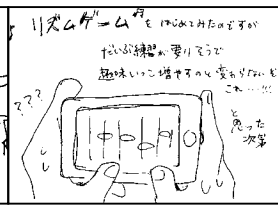 リズムゲーム♬をはじめてみたのですが
だいぶ練習が要りそうで
趣味いっこ増やすのと変わらないぞ
これ……!!!
と思った
次第
???